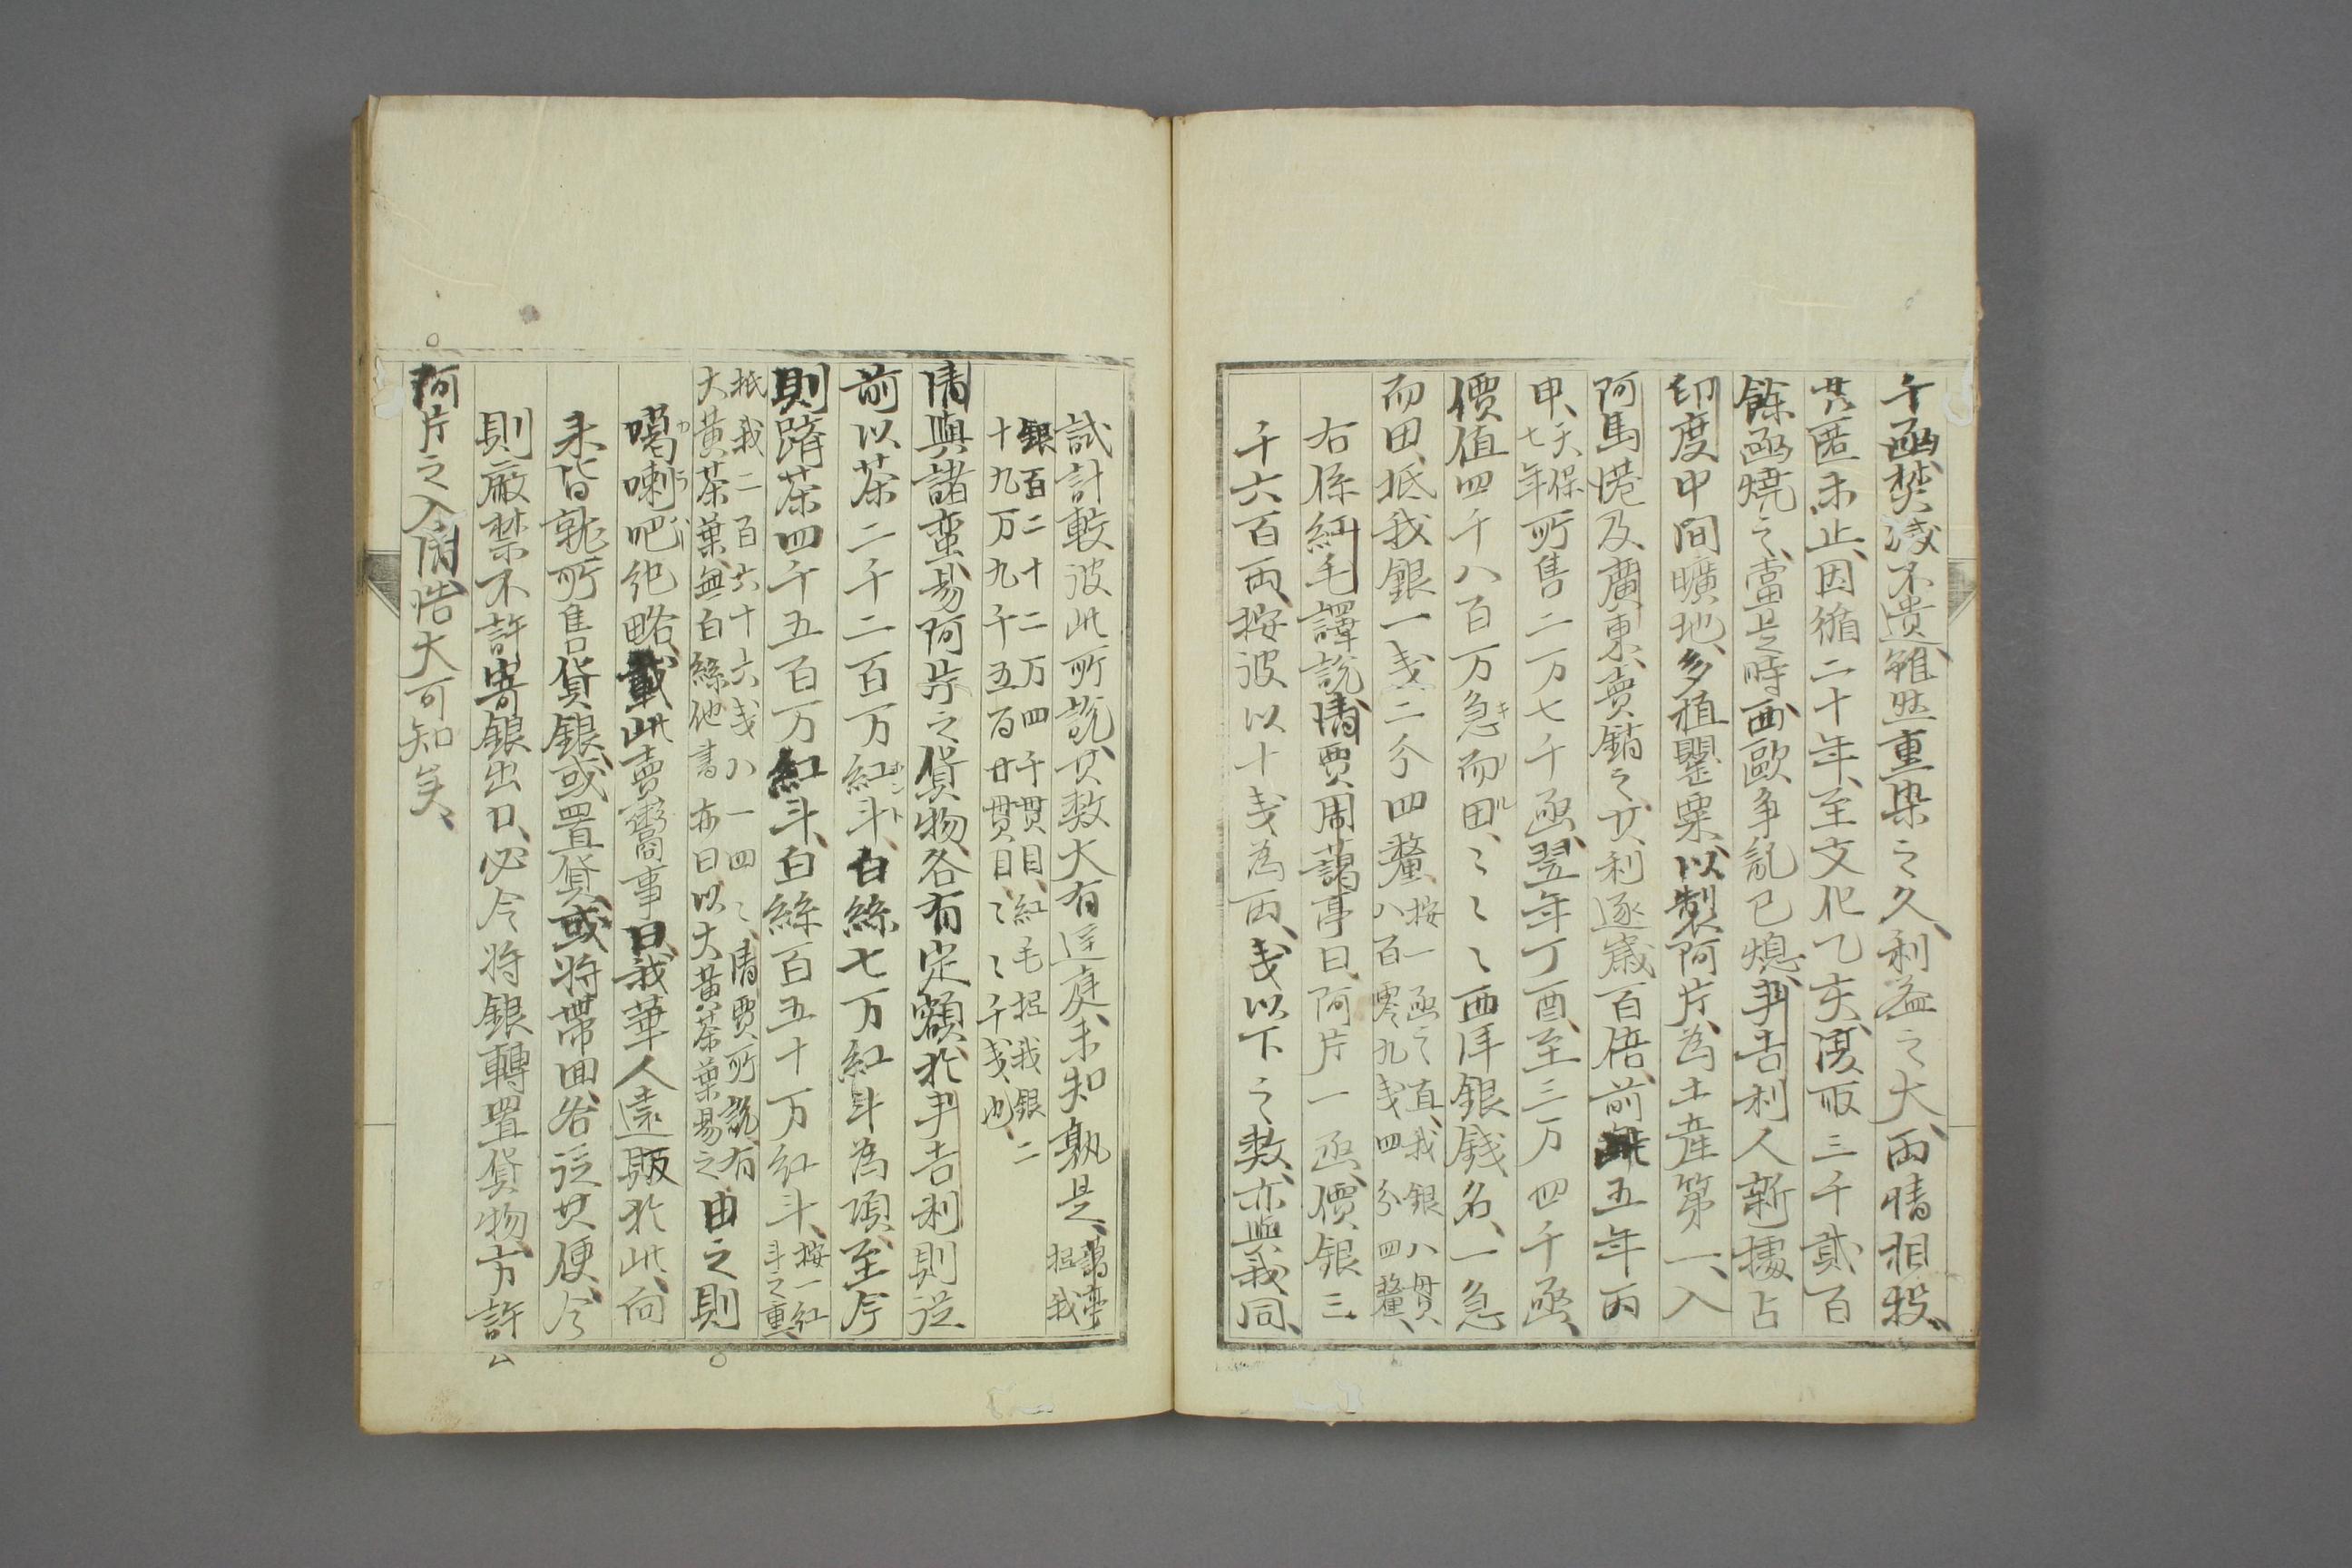 千函焚滅不遺、雖然重染之久、利益之大、両情相投、
其匿未止、因循二十年、至文化乙亥、復取三千貳百
餘函燒之、當是時、西歐争乱已熄、䦰吉利人新據占
印度中间曠地、多植罌粟、以製阿片、為土産第一、入
阿馬港及廣東、賣銷之、其利逐歳百倍、前此五年丙
申、天保七年所售二万七千函、翌年丁酉、至三万四千函、
價值四千八百万急而田、〻〻〻〻西洋銀錢名、一急
而田、抵我銀一戔二分四釐、按一函之直、我銀八貫八百零九戔四分四釐、
右係紅毛譯説、清賈周藹亭曰、阿片一函、價銀三
千六百両、按彼以十戔為両、戔以下之数、亦與我同、
試計較彼此所説、其数大有逕庭、未知孰是、藹亭抵我
銀百二十二万四千貫目、紅毛抵我銀二十九万九千五百廿貫目、〻〻千戔也、
清與諸蛮、易阿片之貨物、各有定額、於䦰吉利則從
前以茶二千二百万紅斗、白絲七万紅斗為項、至今
則躋茶四千五百万紅斗、白絲百五十万紅斗、按一紅斗之重、
抵我二百六十六戔八一四〻、清賈所説有大黄茶葉、無白絲、他書亦曰以大黄茶葉易之、由之則
噶喇吧紀略、載此賣鬻商事曰、我華人遠販於此、向
来皆就所售貨銀、或置貨、或将帯回、各從其便、今
則厳禁不許寄銀出口、必令将銀轉置貨物、方許
阿片之入清、浩大可知矣、